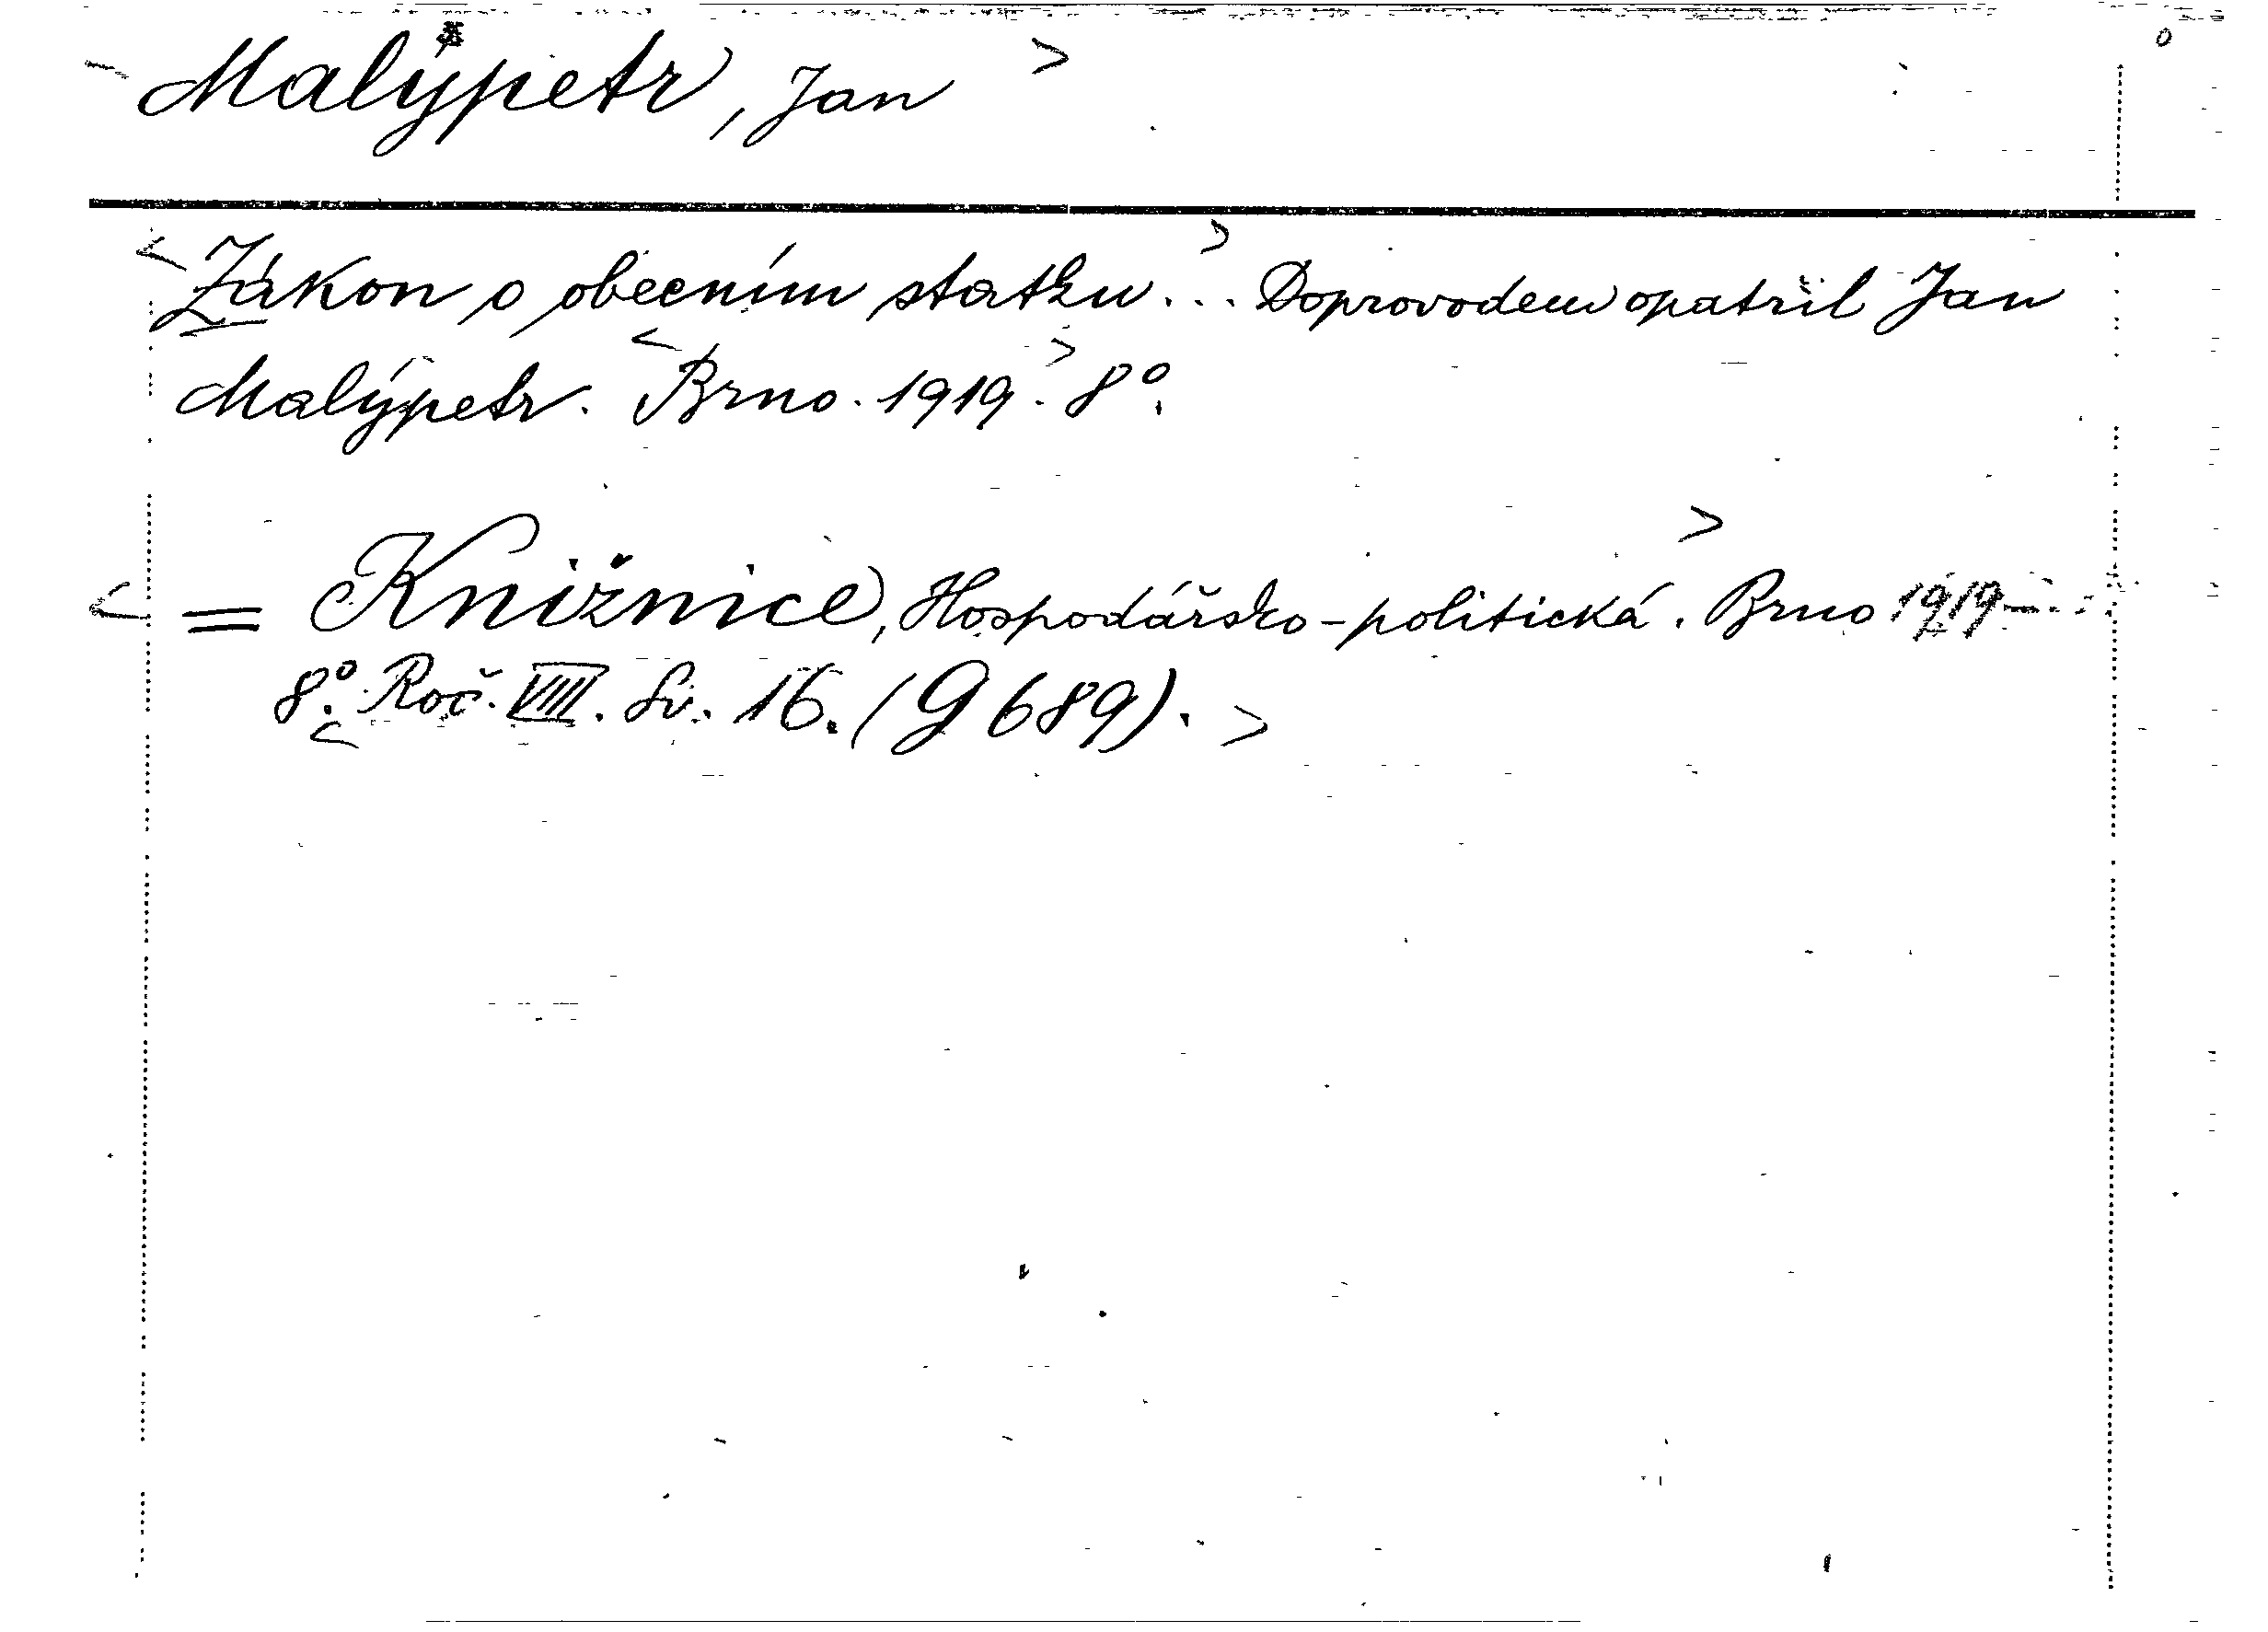 Malýpetr, Jan >
< Zákon o obecním statku. > .. Doprovodem opatřil Jan
Malýpetr. < Brno. 1919. > 8°.
< = Knižnice, Hospodářsko-politická. > Brno 1919-
8°. < Roč. VIII. Sv. 16. (G 689). >